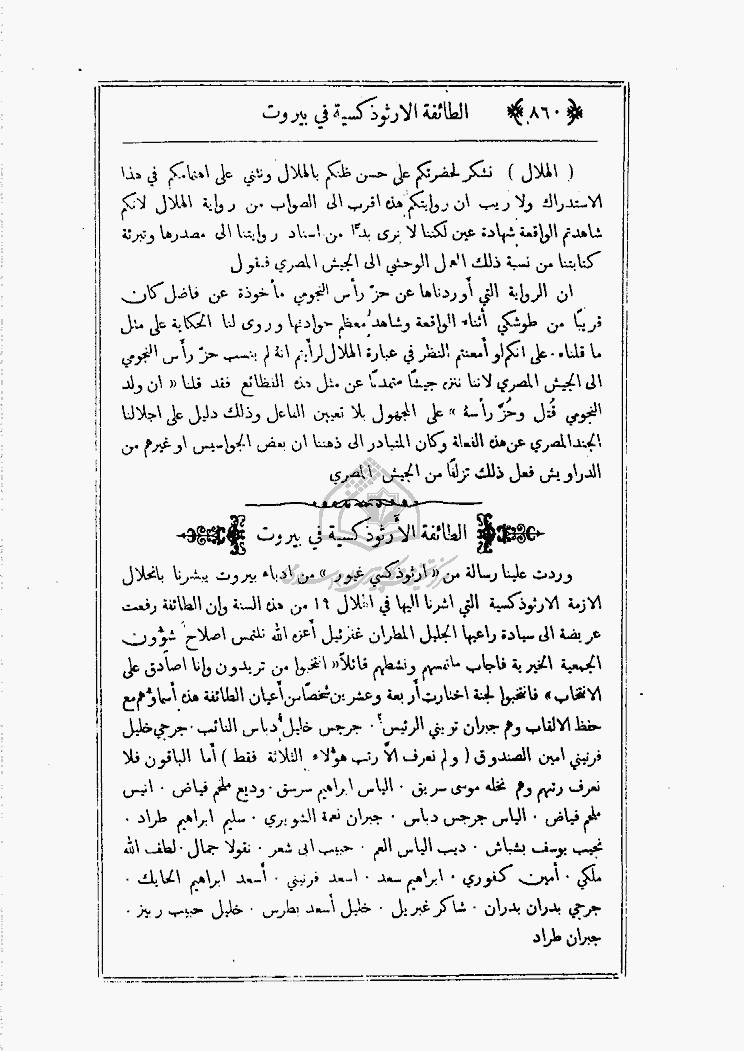 ﴿٨٦٠﴾ الطائفة الارثوذكسية في بيروت
( الهلال ) نشكر لحضرتكم على حسن ظنكم بالهلال ونثني على اهتمامكم في هذا
الاستدراك ولا ريب ان روايتكم هذه اقرب الى الصواب من رواية الهلال لانكم
شاهدتم الواقعة شهادة عين لكننا لا نرى بدًّا من اسناد روايتنا الى مصدرها وتبرئة
كتابتنا من نسبة ذلك العمل الوحشي الى الجيش المصري فنقول
ان الرواية التي أوردناها عن حز رأس النجومي مأخوذة عن فاضل كان
قريبًا من طوشكي أثناء الواقعة وشاهد معظم حوادثها وروى لنا الحكاية على مثل
ما قلناه . على انكم لو أمعنتم النظر في عبارة الهلال لرأيتم انهُ لم ينسب حز رأس النجومي
الى الجيش المصري لاننا ننزه جيشًا متمدنًا عن مثل هذه الفظائع فقد قلنا « ان ولد
النجومي قُتل وحُزَّ رأسهُ » على المجهول بلا تعيين الفاعل وذلك دليل على اجلالنا
الجند المصري عن هذه الفعلة وكان المتبادر الى ذهننا ان بعض الجواسيس او غيرهم من
الدراويش فعل ذلك تزلفًا من الجيش المصري
الطائفة الأرثوذكسية في بيروت
وردت علينا رسالة من « ارثوذكسي غيور » من ادباء بيروت يبشرنا بانحلال
الازمة الارثوذكسية التي اشرنا اليها في الهلال ١٦ من هذه السنة وان الطائفة رفعت
عريضة الى سيادة راعيها الجليل المطران غفرئيل أعزه الله تلتمس اصلاح شؤون
الجمعية الخيرية فاجاب ملتمسهم ونشطهم قائلاً « انتخبوا من تريدون وانا اصادق على
الانتخاب » فانتخبوا لجنة اختارت أربعة وعشرين شخصًا من أعيان الطائفة هذه أسماؤهم مع
حفظ الالقاب وهم جبران تويني الرئيس . جرجس خليل دباس النائب . جرجي خليل
فرنيني امين الصندوق ( ولم نعرف الاَّ رتب هؤلاء الثلاثة فقط ) أما الباقون فلا
نعرف رتبهم وهم نخله موسى سريق . الياس ابراهيم سرسق . وديع ملحم فياض . انيس
ملحم فياض . الياس جرجس دباس . جبران نعمة الشويري . سليم ابراهيم طراد .
نجيب يوسف بشباش . ديب الياس العم . حبيب ابى شعر . نقولا جمال . لطف الله
ملكي . أمين كفوري . ابراهيم سعد . اسعد فرنيني . أسعد ابراهيم الحايك .
جرجي بدران بدران . شاكر غبريل . خليل أسعد بطرس . خليل حبيب ربيز .
جبران طراد